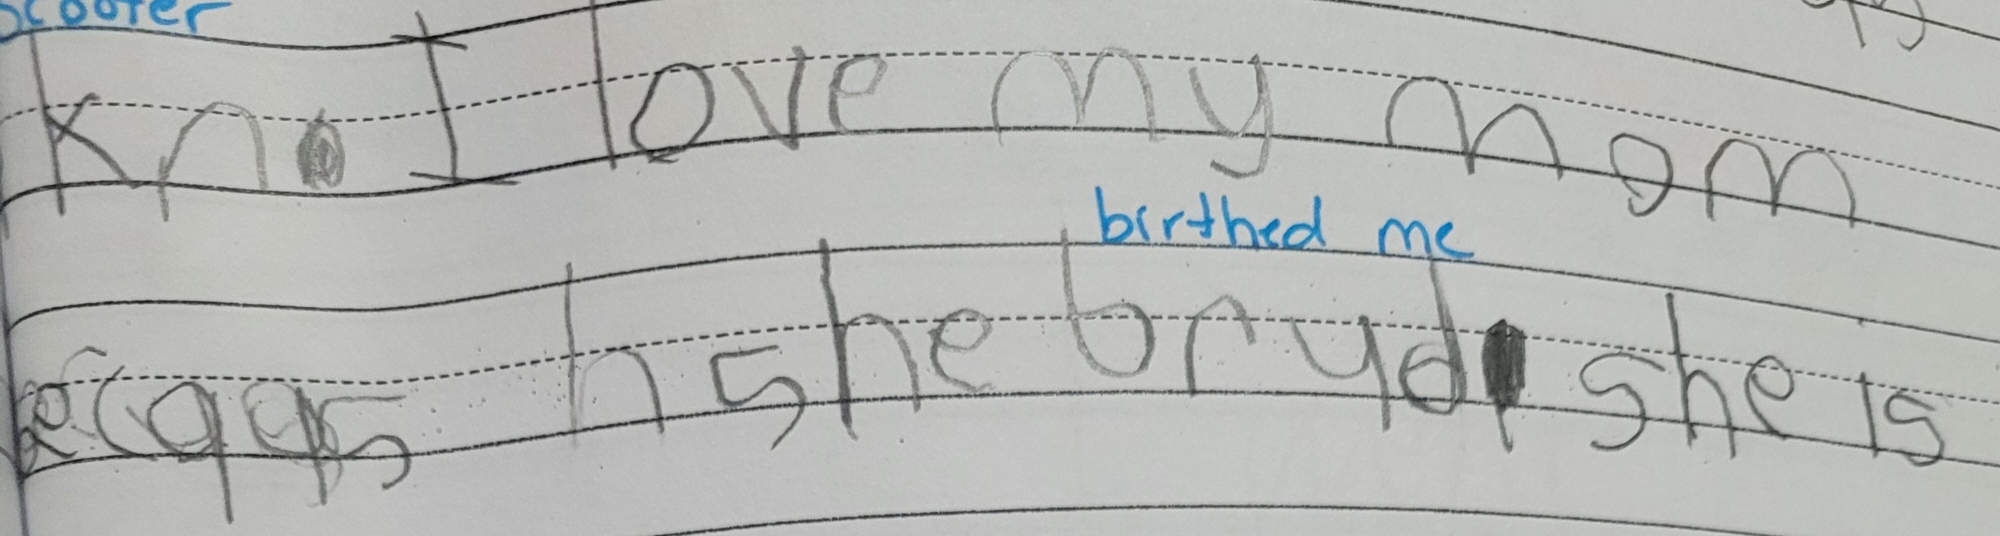 scooter
kn I love my mom
birthed me
ecqqs h she bryd she is